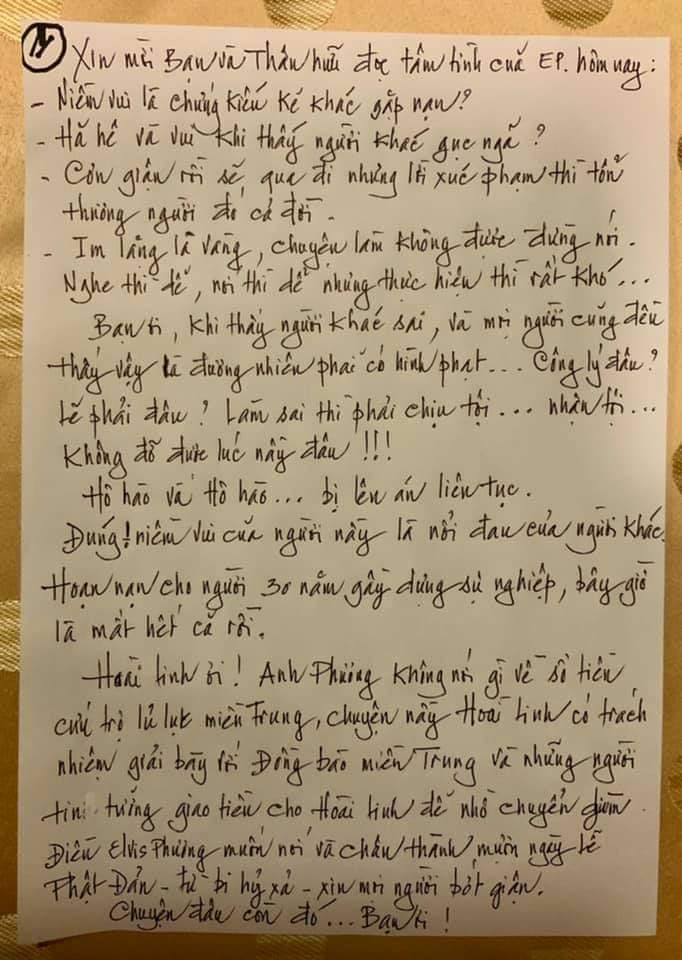 14
Xin mời Bạn và Thân hữu đọc tâm tình cuả EP. hôm nay:
- Niềm vui là chứng kiến kẻ khác gặp nạn?
- Hả hê và vui khi thấy người khác gục ngã?
- Cơn giận rồi sẽ qua đi nhưng lời xúc phạm thì tổn
thương người đó cả đời.
- Im lặng là vàng, chuyện làm không được đừng nói.
Nghe thì dễ, nói thì dễ nhưng thực hiện thì rất khó...
Bạn ơi, khi thấy người khác sai, và mọi người cũng đều
thấy vậy là đương nhiên phải có hình phạt... Công lý đâu?
Lẽ phải đâu? Làm sai thì phải chịu tội... nhận tội...
Không đổ được lúc này đâu!!!
Hô hào và Hô hào... bị lên án liên tục.
Đúng! niềm vui của người này là nỗi đau của người khác.
Hoạn nạn cho người 30 năm gầy dựng sự nghiệp, bây giờ
là mất hết cả rồi.
Hoài Linh ơi! Anh Phương không nói gì về số tiền
cứu trợ lủ lụt miền Trung, chuyện này Hoài Linh có trách
nhiệm giải bày với Đồng bào miền Trung và những người
tin tưởng giao tiền cho Hoài Linh để nhờ chuyển giùm.
Điều Elvis Phương muốn nói và chân thành mượn ngày lễ
Phật Đản - từ bi hỷ xả - xin mọi người bớt giận.
Chuyện đâu còn đó... Bạn ơi!